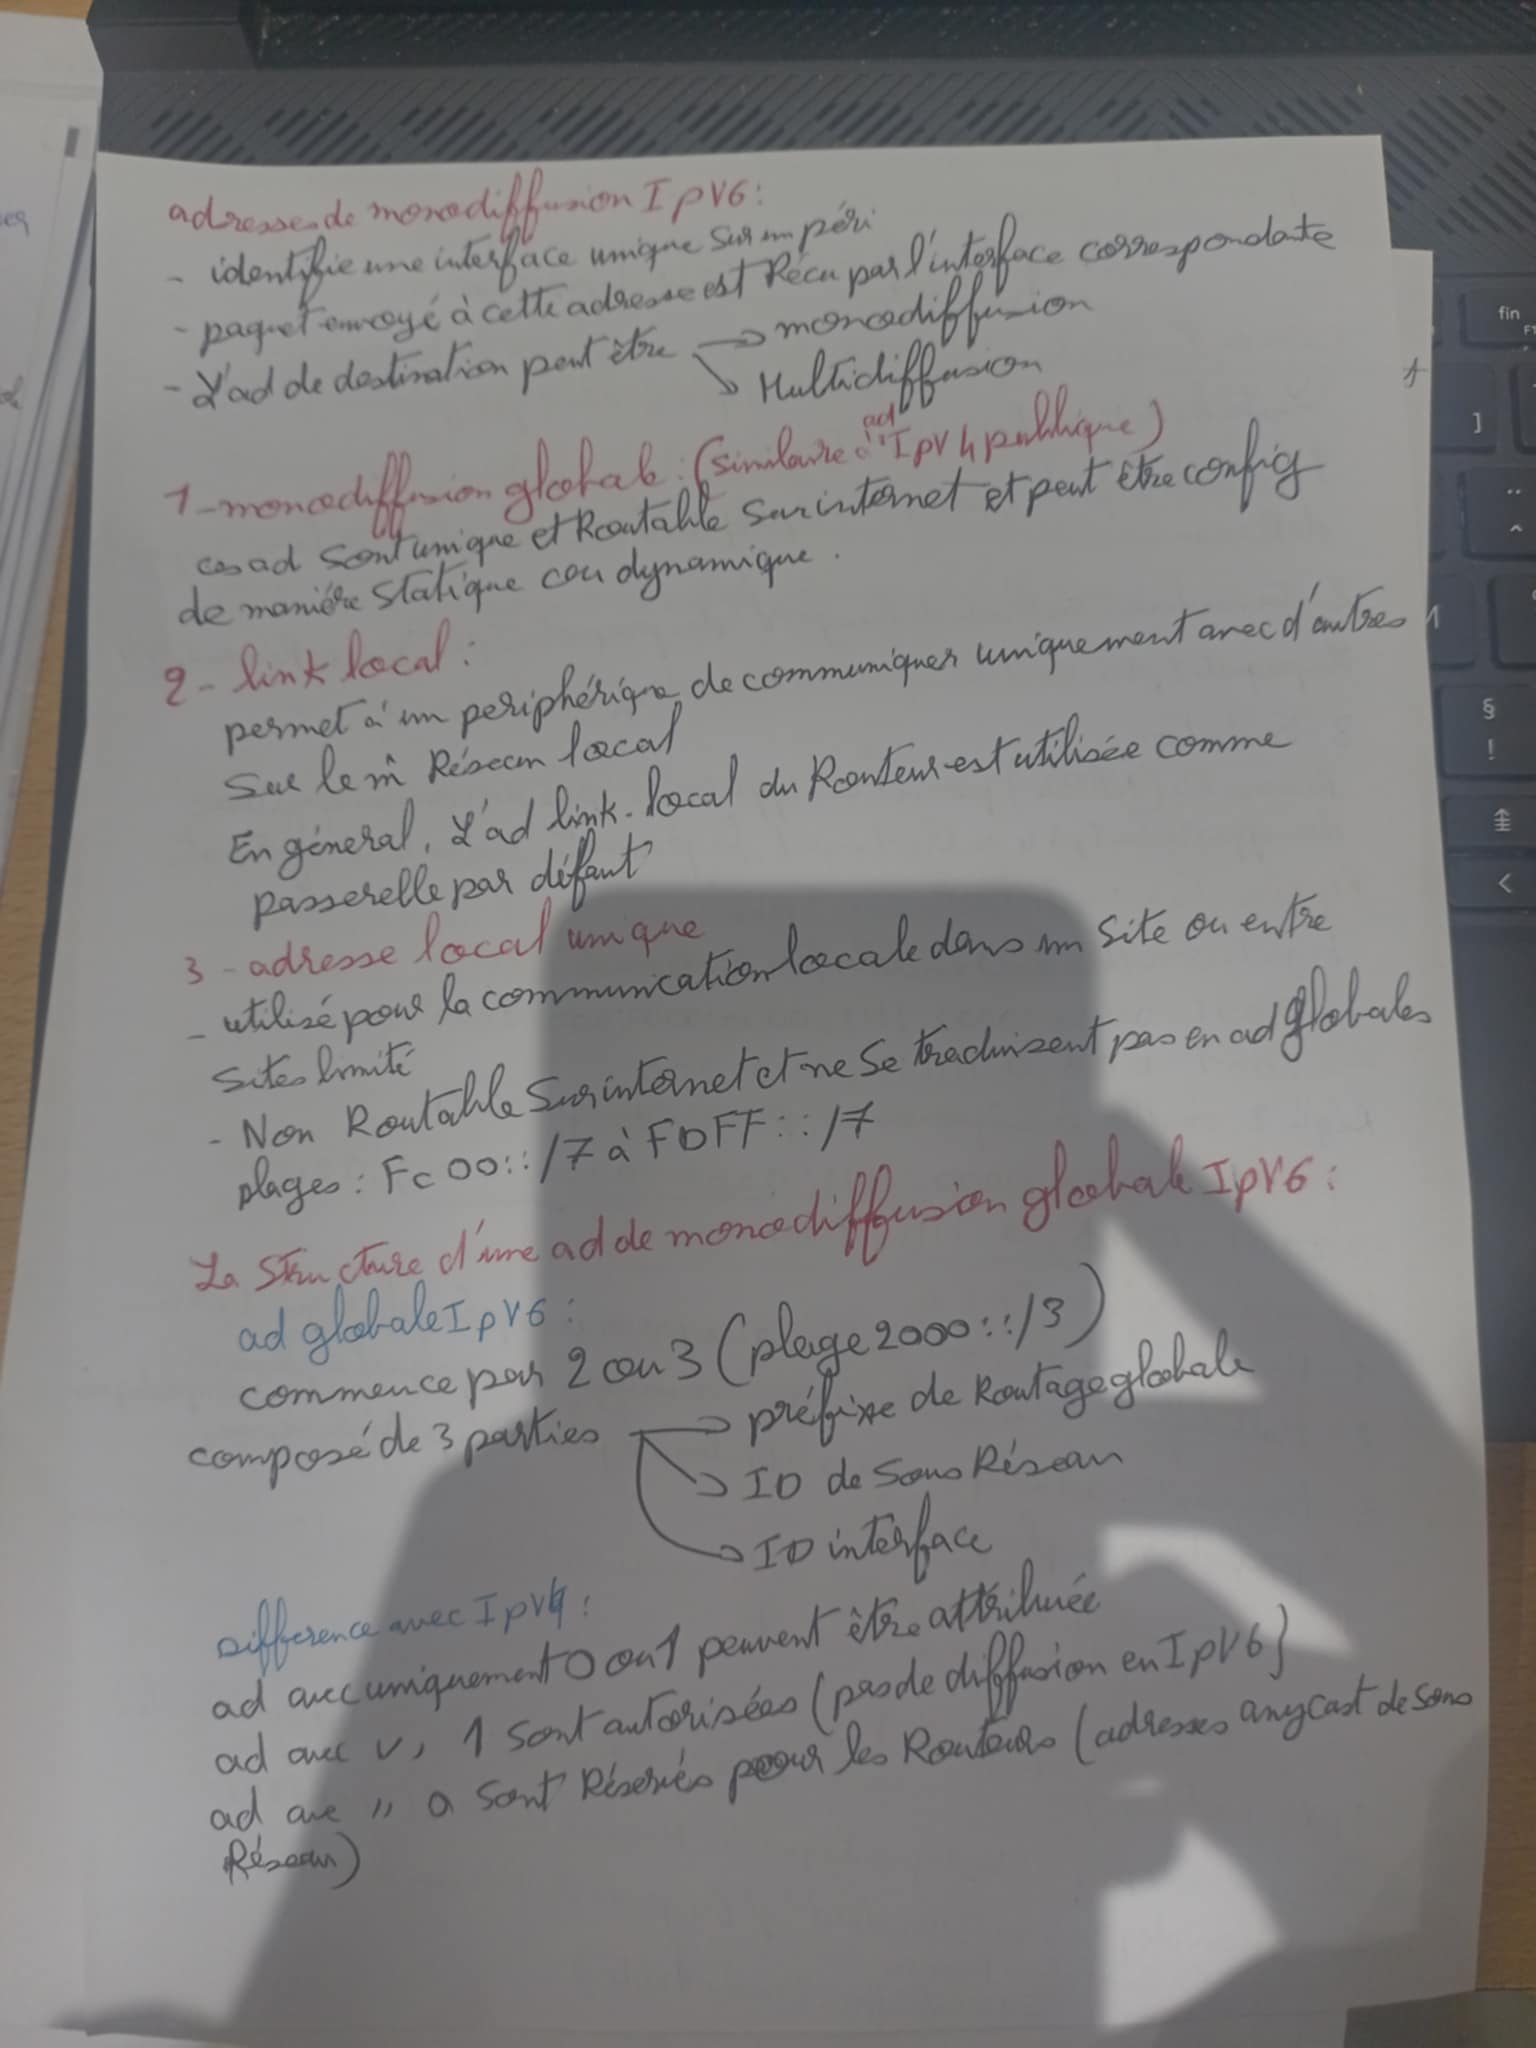 adresses de monodiffusion IPV6 :
- identifie une interface unique sur un péri
- paquet envoyé à cette adresse est Récu par l'interface correspondante
- L'ad de destination peut être → monodiffusion
↘ Multidiffusion
1 - monodiffusion globale : (similaire à ad IPV4 publique)
ces ad sont unique et Routable sur internet et peut être config
de manière statique ou dynamique.
2 - link local :
permet à un periphérique de communiquer uniquement avec d'autres
sur le m̂ Réseau local
En géneral, L'ad link-local du Routeur est utilisée comme
passerelle par défaut
3 - adresse local unique
- utilisé pour la communication locale dans un site ou entre
sites limité
- Non Routable sur internet et ne se traduisent pas en ad globales
plages : Fc00::/7 à FDFF::/7
La structure d'une ad de monodiffusion globale IPV6 :
ad globale IPV6 :
commence par 2 ou 3 (plage 2000::/3)
composé de 3 parties → préfixe de Routage globale
→ ID de sous Réseau
→ ID interface
Difference avec IPV4 :
ad avec uniquement 0 ou 1 peuvent être attribuée
ad avec 1 sont autorisées (pas de diffusion en IPV6)
ad ave " 0 sont Réservés pour les Routeurs (adresses anycast de sous
Réseau)
fin
]
¨
^
§
!
<